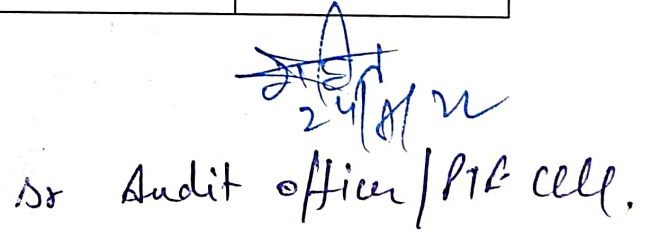 24/8/22
Sr Audit officer/PTF Cell.